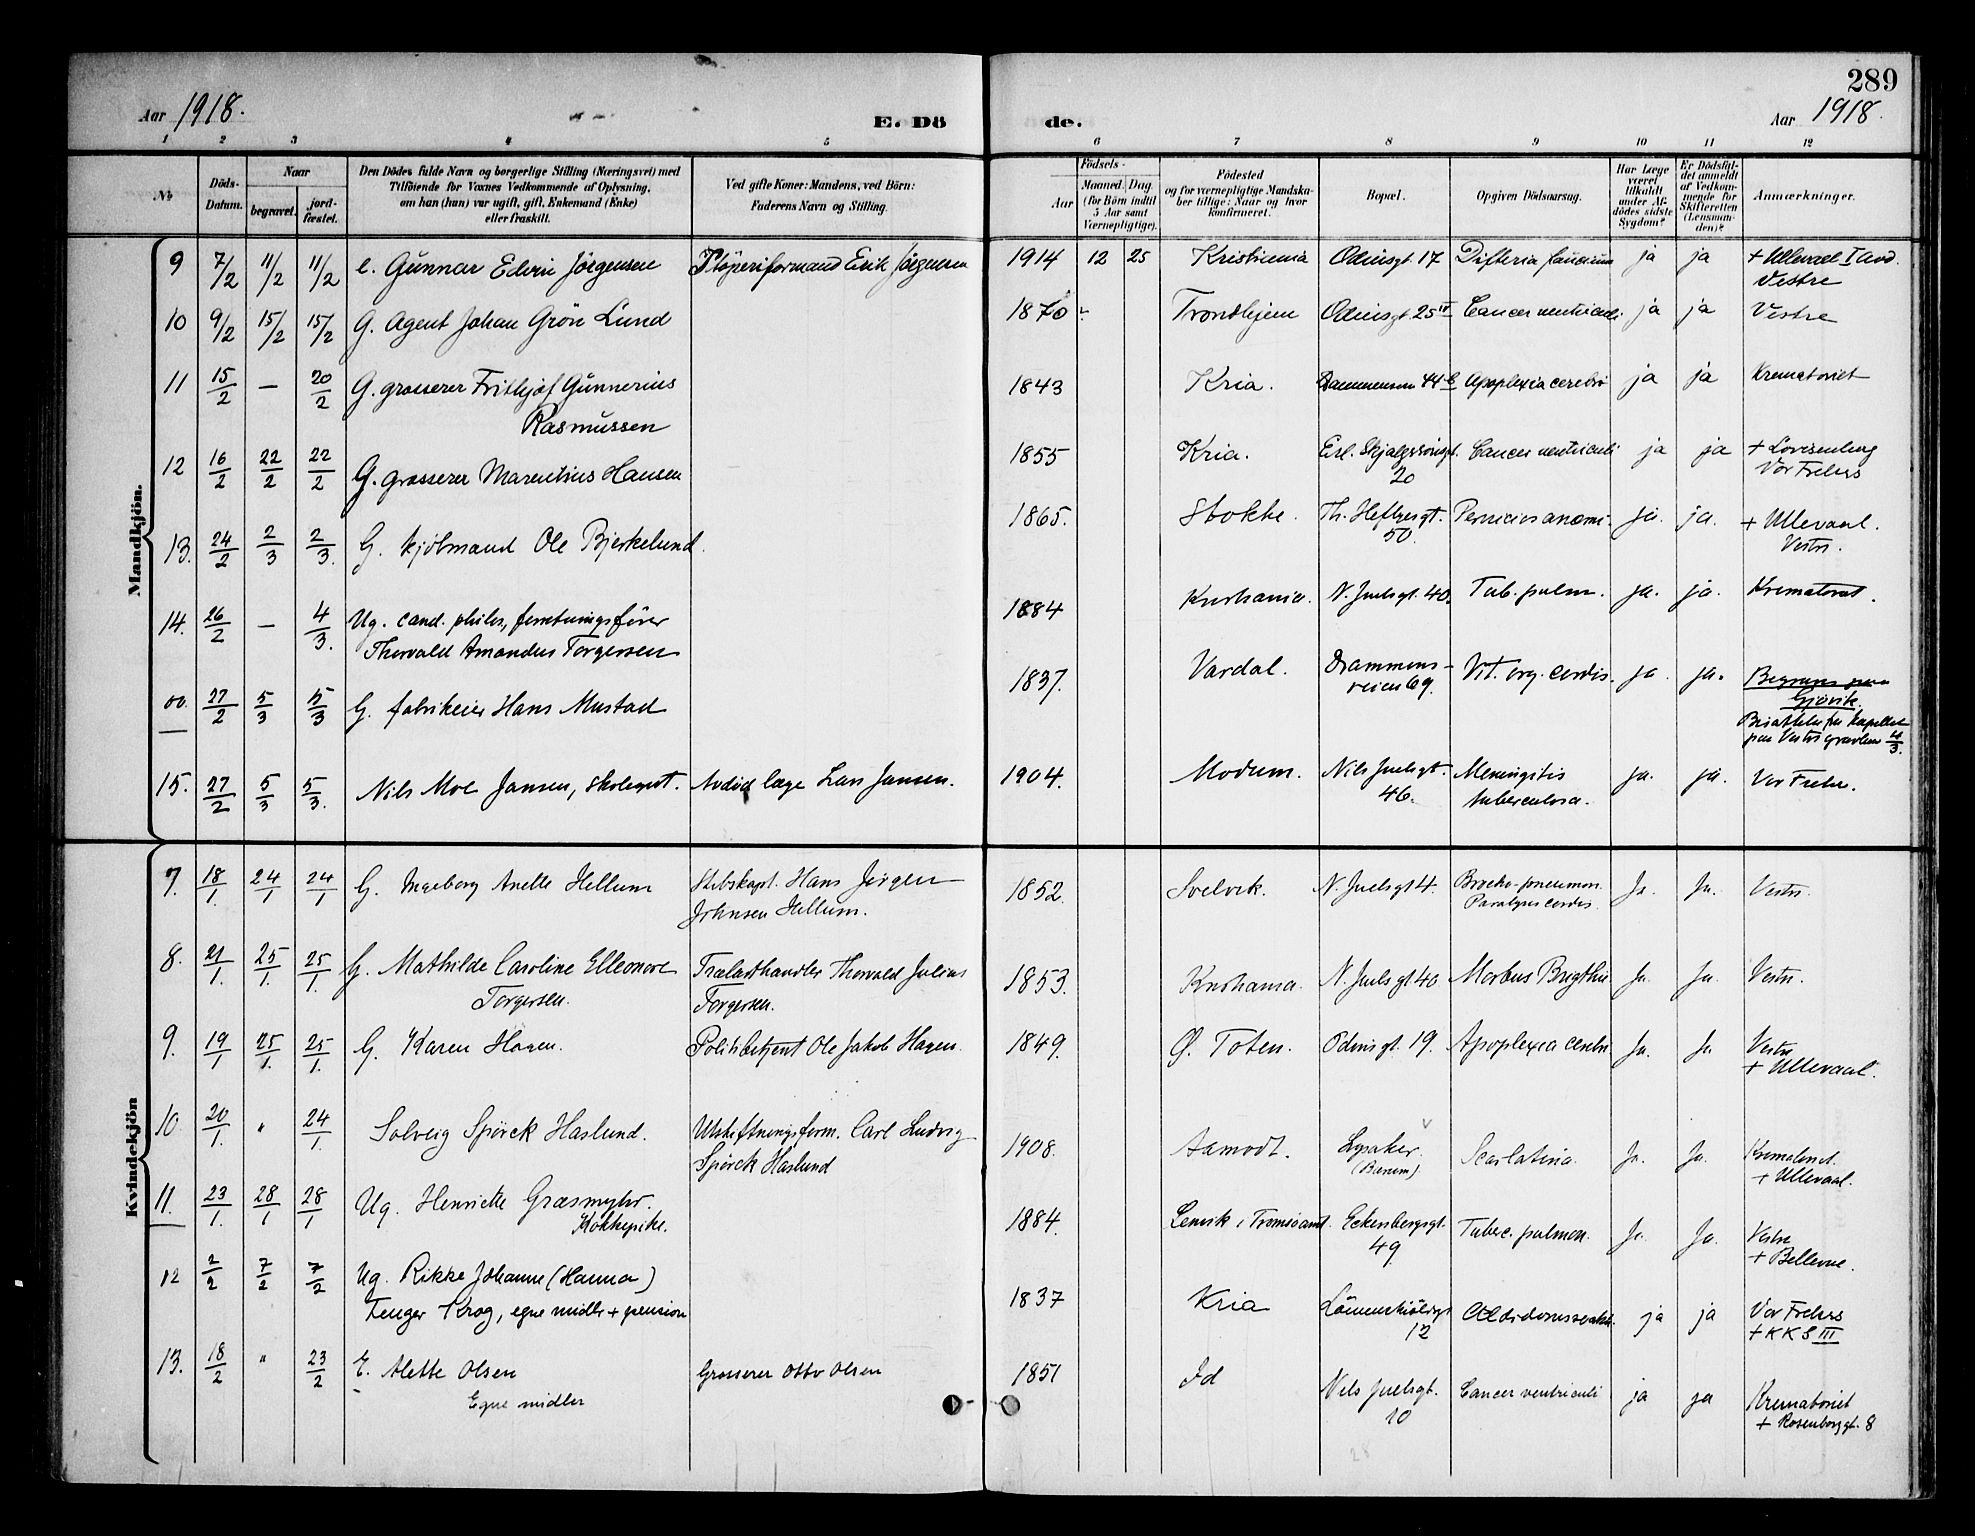 289
Aar 1918.
E. Dö
de.
Aar 1918.
1 2 3 4 5 6 7 8 9 10 11 12
No
Döds-Datum.
Naar
begravet.
jord-fæstet.
Den Dödes fulde Navn og borgerlige Stilling (Næringsvei) med
Tilföiende for Voxnes Vedkommende af Oplysning,
om han (hun) var ugift, gift, Enkemand (Enke)
eller fraskilt.
Ved gifte Koner: Mandens, ved Börn:
Faderens Navn og Stilling.
Födsels-
Aar
Maaned. Dag.
(for Börn indtil
5 Aar samt
Værnepligtige).
Födested
og for værnepligtige Mandska-
ber tillige: Naar og hvor
konfirmeret.
Bopæl.
Opgiven Dödsaarsag.
Har Læge
været
tilkaldt
under Af-
dödes sidste
Sygdom?
Er Dödsfal-
det anmeldt
af Vedkom-
mende for
Skifteretten
(Lensman-
den)?
Anmærkninger.
Mandkjön.
9 7/2 11/2 11/2 e. Gunnar Edvin Jörgensen Stöperiformand Erik Jörgensen 1914 12 25 Kristiania Odinsgt 17 Difteria faucium ja ja + Ullevaal I avd.
Vestre
10 9/2 15/2 15/2 G. Agent Johan Grön Lund 1870 Trondhjem Odinsgt 25 II Cancer ventriculi ja ja Vestre
11 15/2 — 20/2 G. grosserer Frithjof Gunnerius
Rasmussen 1843 Kria. 44 Apoplexia cerebri ja ja Krematoriet
12 16/2 22/2 22/2 G. grosserer Marentius Hansen 1855 Kria. Erl. Skjalgssonsgt.
20 Cancer ventriculi ja ja + Lovisenberg
Vor Frelsers
13. 24/2 2/3 2/3. G. kjölmand Ole Bjerkelund. 1865. Stokke. Th. Heftyesgt.
50. Perniciøs anæmi. ja. ja. + Ullevaal.
Vestre.
14. 26/2 — 4/3. Ug. cand. philos, forretningsfører
Thorvald Amandus Torgersen 1884 Kristiania. N. Juelsgt. 40. Tub. pulm. ja. ja. Krematoriet.
00. 27/2 5/3 5/3 G. fabrikeier Hans Mustad 1837. Vardal. Drammens-
veien 69. Vit. org. cordis. ja. ja. Begraves paa
Gjøvik.
Bisættelse fra kapellet
paa Vestre gravlund 4/3.
15. 27/2 5/3 5/3. Nils Moe Jansen, skolegut. Avdød læge Lars Jansen. 1904. Modum. Nils Juelsgt.
46. Meningitis
tuberculosa. ja. ja. Vor Frelser.
Kvindekjön
7. 18/1 24/1 24/1 G. Ingeborg Anette Hellum Stabskapt. Hans Jørgen
Johnsen Hellum. 1852. Svelvik. N. Juelsgt 4. Broncho-pneumon.
Paralysis cordis. Ja. Ja. Vestre.
8. 21/1. 25/1. 25/1. G. Mathilde Caroline Elleonore
Torgersen. Trælasthandler Thorvald Julius
Torgersen. 1853. Kristiania. N. Juelsgt 40 Morbus Brigthii Ja. Ja. Vestre.
9. 19/1 25/1. 25/1. G. Karen Hagen. Politibetjent Ole Jakob Hagen. 1849. Ø. Toten. Odinsgt. 19. Apoplexia cerebri Ja. Ja Vestre
+ Ullevaal.
10. 20/1. " 24/1. Solveig Spörck Haslund. Utskiftningsform. Carl Ludvig
Spörck Haslund 1908. Aamodt. Lysaker.
(Bærum) Scarlatina. Ja. Ja. Krematoriet.
+ Ullevaal.
11. 23/1. 28/1 28/1 Ug. Henriette Græsmyhr.
Kokkepike. 1884. Lenvik i Tromsö amt. Eckersbergsgt.
49 Tuberc. pulmon. Ja. Ja. Vestre
+ Bellevue.
12 2/2 7/2 7/2 Ug. Rikke Johanne (Hanna)
Fenger Krog, egne midler + pension 1837 Kria Lövenskioldsgt
12 Alderdomssvakh. ja ja Vor Frelsers
+ KKS III
13. 18/2 " 23/2 E. Alette Olsen
Egne midler Grosserer Otto Olsen 1851 Id Nils Juelsgt.
10 Cancer ventriculi ja ja Krematoriet
+ Rosenborggt. 8